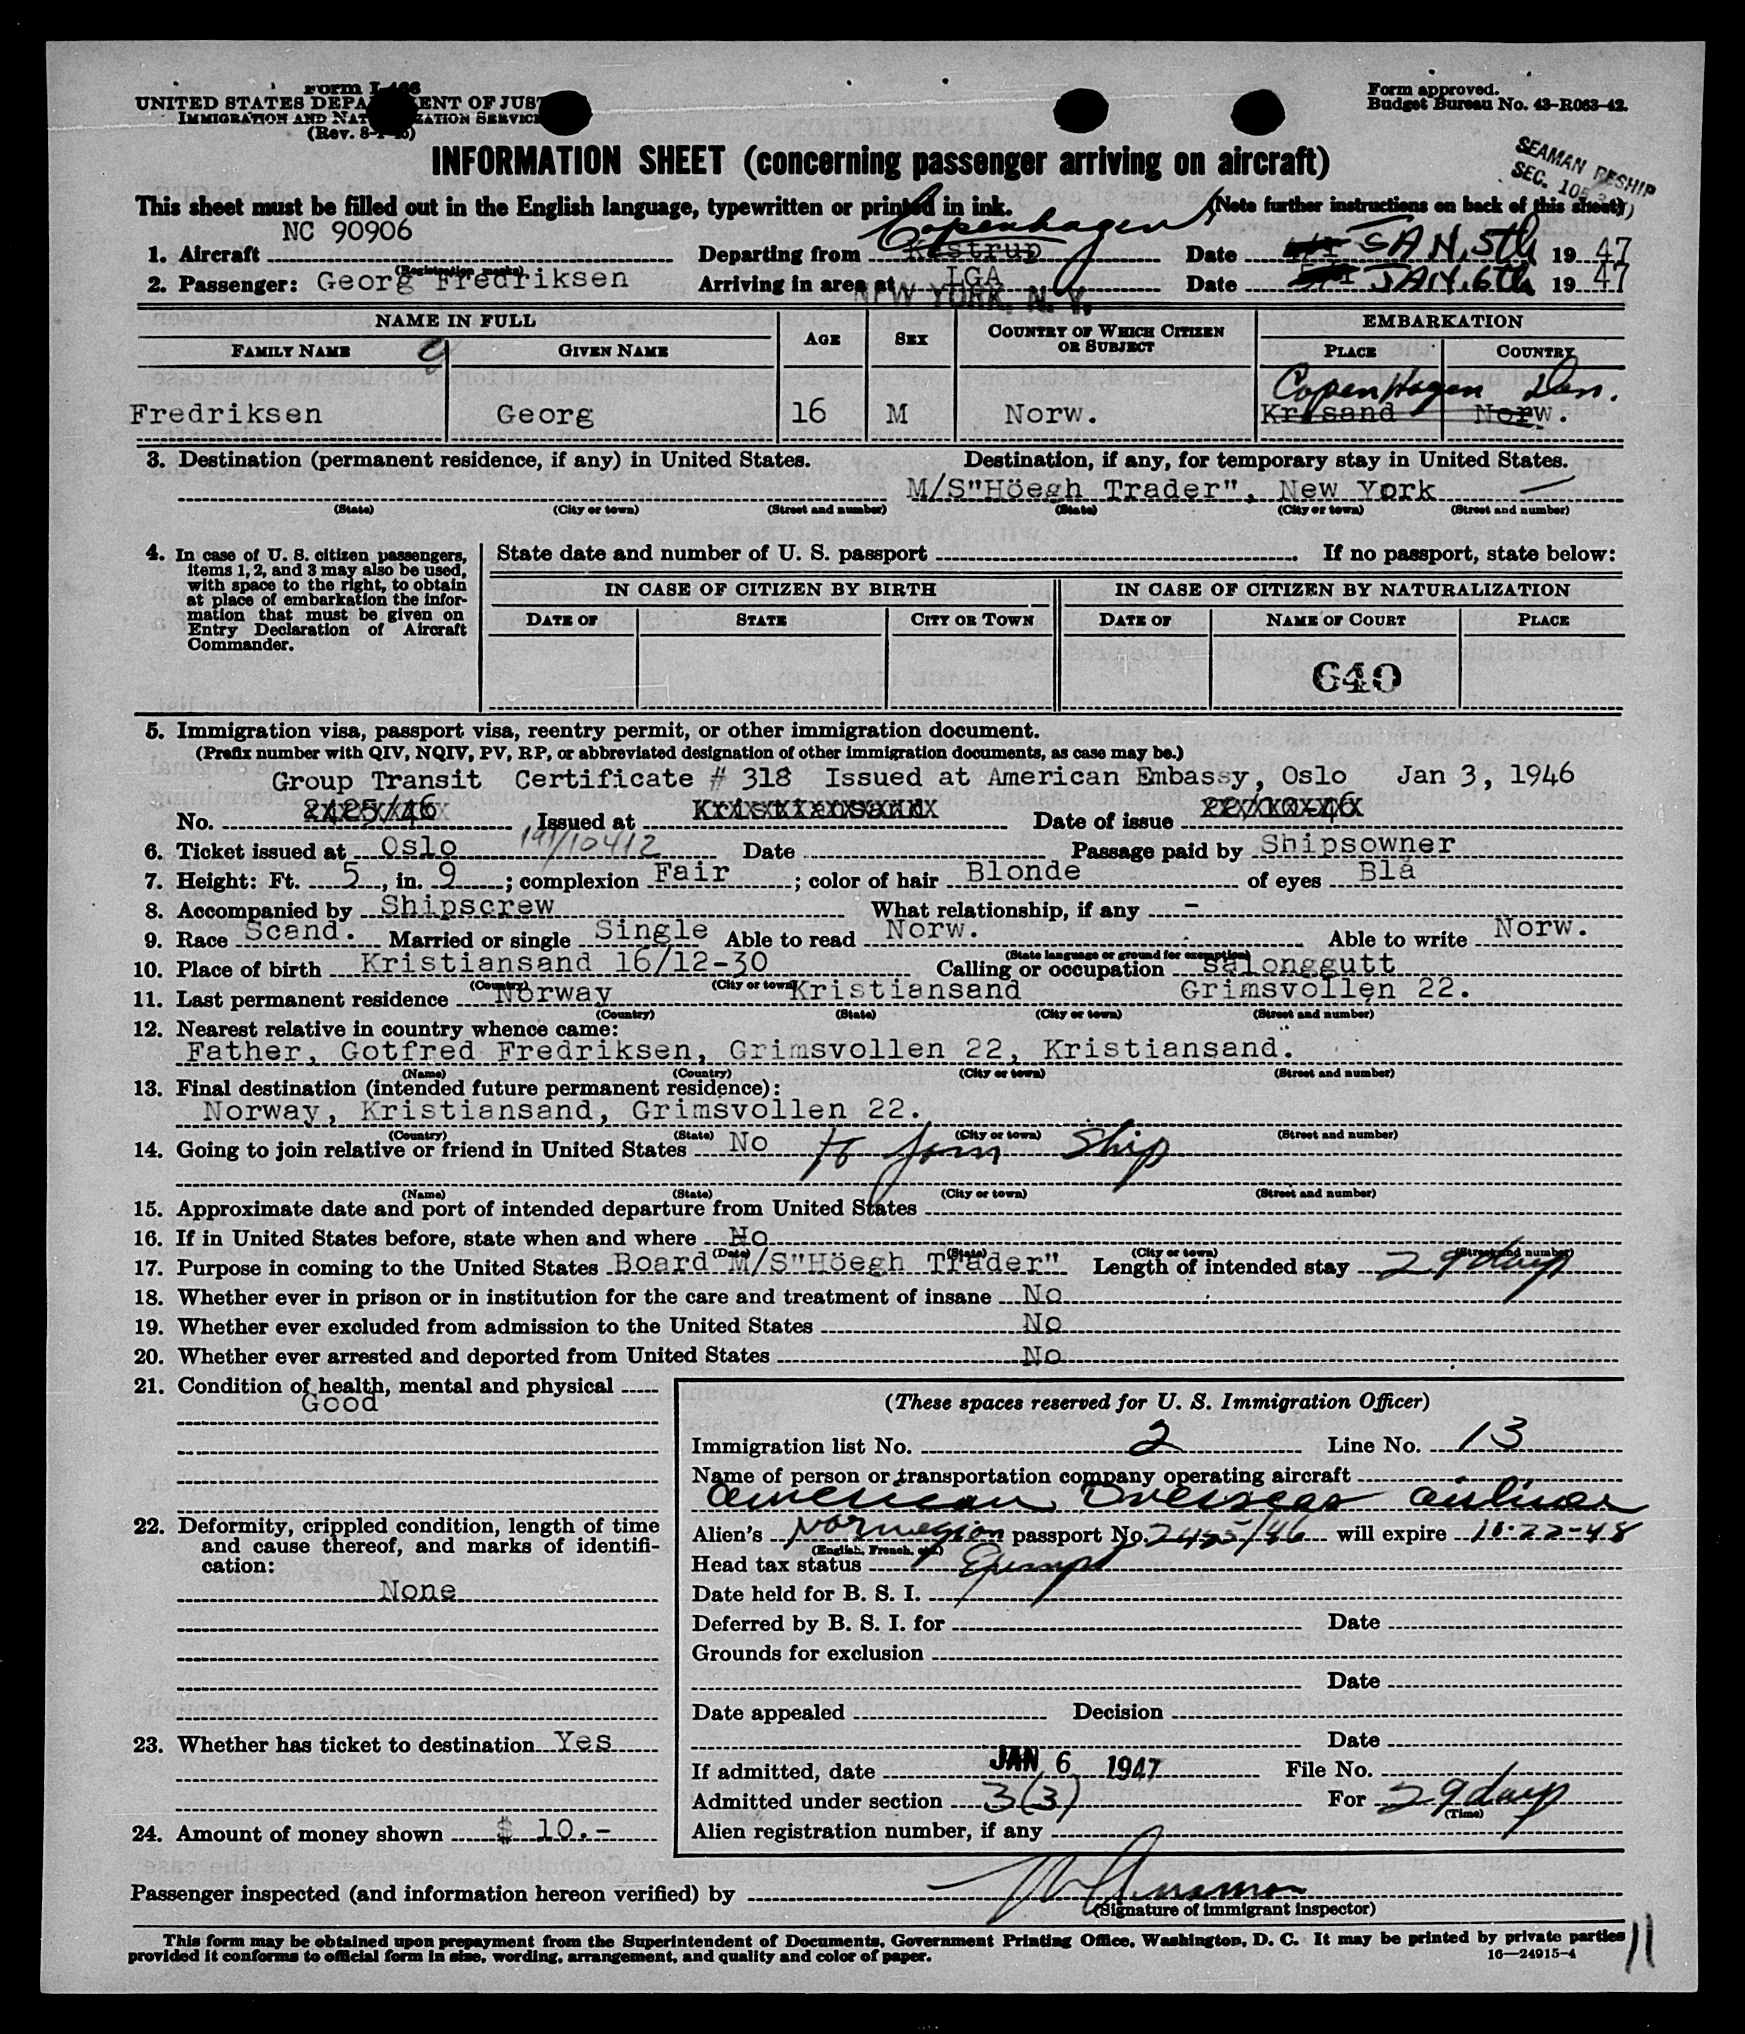 Form I-466
UNITED STATES DEPARTMENT OF JUSTICE
IMMIGRATION AND NATURALIZATION SERVICE
(Rev. 8-1-45)
Form approved.
Budget Bureau No. 43-R063-42.
SEAMAN RESHIP
SEC. 105
INFORMATION SHEET (concerning passenger arriving on aircraft)
This sheet must be filled out in the English language, typewritten or printed in ink. (Note further instructions on back of this sheet)
NC 90906 Copenhagen
1. Aircraft Departing from Kastrup Date JAN. 5th 1947
(Registration marks)
2. Passenger: Georg Fredriksen Arriving in area at LGA Date JAN. 6th 1947
NEW YORK, N. Y.
NAME IN FULL AGE SEX COUNTRY OF WHICH CITIZEN OR SUBJECT EMBARKATION
FAMILY NAME GIVEN NAME PLACE COUNTRY
Copenhagen Den.
Fredriksen Georg 16 M Norw. Krisand Norw.
3. Destination (permanent residence, if any) in United States. Destination, if any, for temporary stay in United States.
M/S"Höegh Trader", New York —
(State) (City or town) (Street and number) (State) (City or town) (Street and number)
4. In case of U. S. citizen passengers, items 1, 2, and 3 may also be used, with space to the right, to obtain at place of embarkation the information that must be given on Entry Declaration of Aircraft Commander.
State date and number of U. S. passport . If no passport, state below:
IN CASE OF CITIZEN BY BIRTH IN CASE OF CITIZEN BY NATURALIZATION
DATE OF STATE CITY OR TOWN DATE OF NAME OF COURT PLACE
640
5. Immigration visa, passport visa, reentry permit, or other immigration document.
(Prefix number with QIV, NQIV, PV, RP, or abbreviated designation of other immigration documents, as case may be.)
Group Transit Certificate # 318 Issued at American Embassy, Oslo Jan 3, 1946
No. 2425/46 Issued at Kristiansand Date of issue 22/10-46
6. Ticket issued at Oslo 191/10412 Date Passage paid by Shipsowner
7. Height: Ft. 5, in. 9; complexion Fair; color of hair Blonde of eyes Blå
8. Accompanied by Shipscrew What relationship, if any -
9. Race Scand. Married or single Single Able to read Norw. Able to write Norw.
(State language or ground for exemption)
10. Place of birth Kristiansand 16/12-30 Calling or occupation salonggutt
(Country) (City or town)
11. Last permanent residence Norway Kristiansand Grimsvollen 22.
(Country) (State) (City or town) (Street and number)
12. Nearest relative in country whence came:
Father, Gotfred Fredriksen, Grimsvollen 22, Kristiansand.
(Name) (Country) (City or town) (Street and number)
13. Final destination (intended future permanent residence):
Norway, Kristiansand, Grimsvollen 22.
(Country) (State) (City or town) (Street and number)
14. Going to join relative or friend in United States No to join Ship
(Name) (State) (City or town) (Street and number)
15. Approximate date and port of intended departure from United States
16. If in United States before, state when and where No
(Date) (State) (City or town) (Street and number)
17. Purpose in coming to the United States Board M/S"Höegh Trader" Length of intended stay 29 days
18. Whether ever in prison or in institution for the care and treatment of insane No
19. Whether ever excluded from admission to the United States No
20. Whether ever arrested and deported from United States No
21. Condition of health, mental and physical
Good
(These spaces reserved for U. S. Immigration Officer)
Immigration list No. 2 Line No. 13
Name of person or transportation company operating aircraft
American Overseas Airlines
22. Deformity, crippled condition, length of time and cause thereof, and marks of identification:
None
Alien's Norwegian passport No. 2425/46 will expire 10-22-48
(English, French, etc.)
Head tax status Exempt
Date held for B. S. I.
Deferred by B. S. I. for Date
Grounds for exclusion
Date
Date appealed Decision
23. Whether has ticket to destination Yes
Date
If admitted, date JAN 6 1947 File No.
Admitted under section 3(3) For 29 days
(Time)
24. Amount of money shown $ 10.-
Alien registration number, if any
Passenger inspected (and information hereon verified) by
(Signature of immigrant inspector)
This form may be obtained upon prepayment from the Superintendent of Documents, Government Printing Office, Washington, D. C. It may be printed by private parties
provided it conforms to official form in size, wording, arrangement, and quality and color of paper. 16—24915-4
11